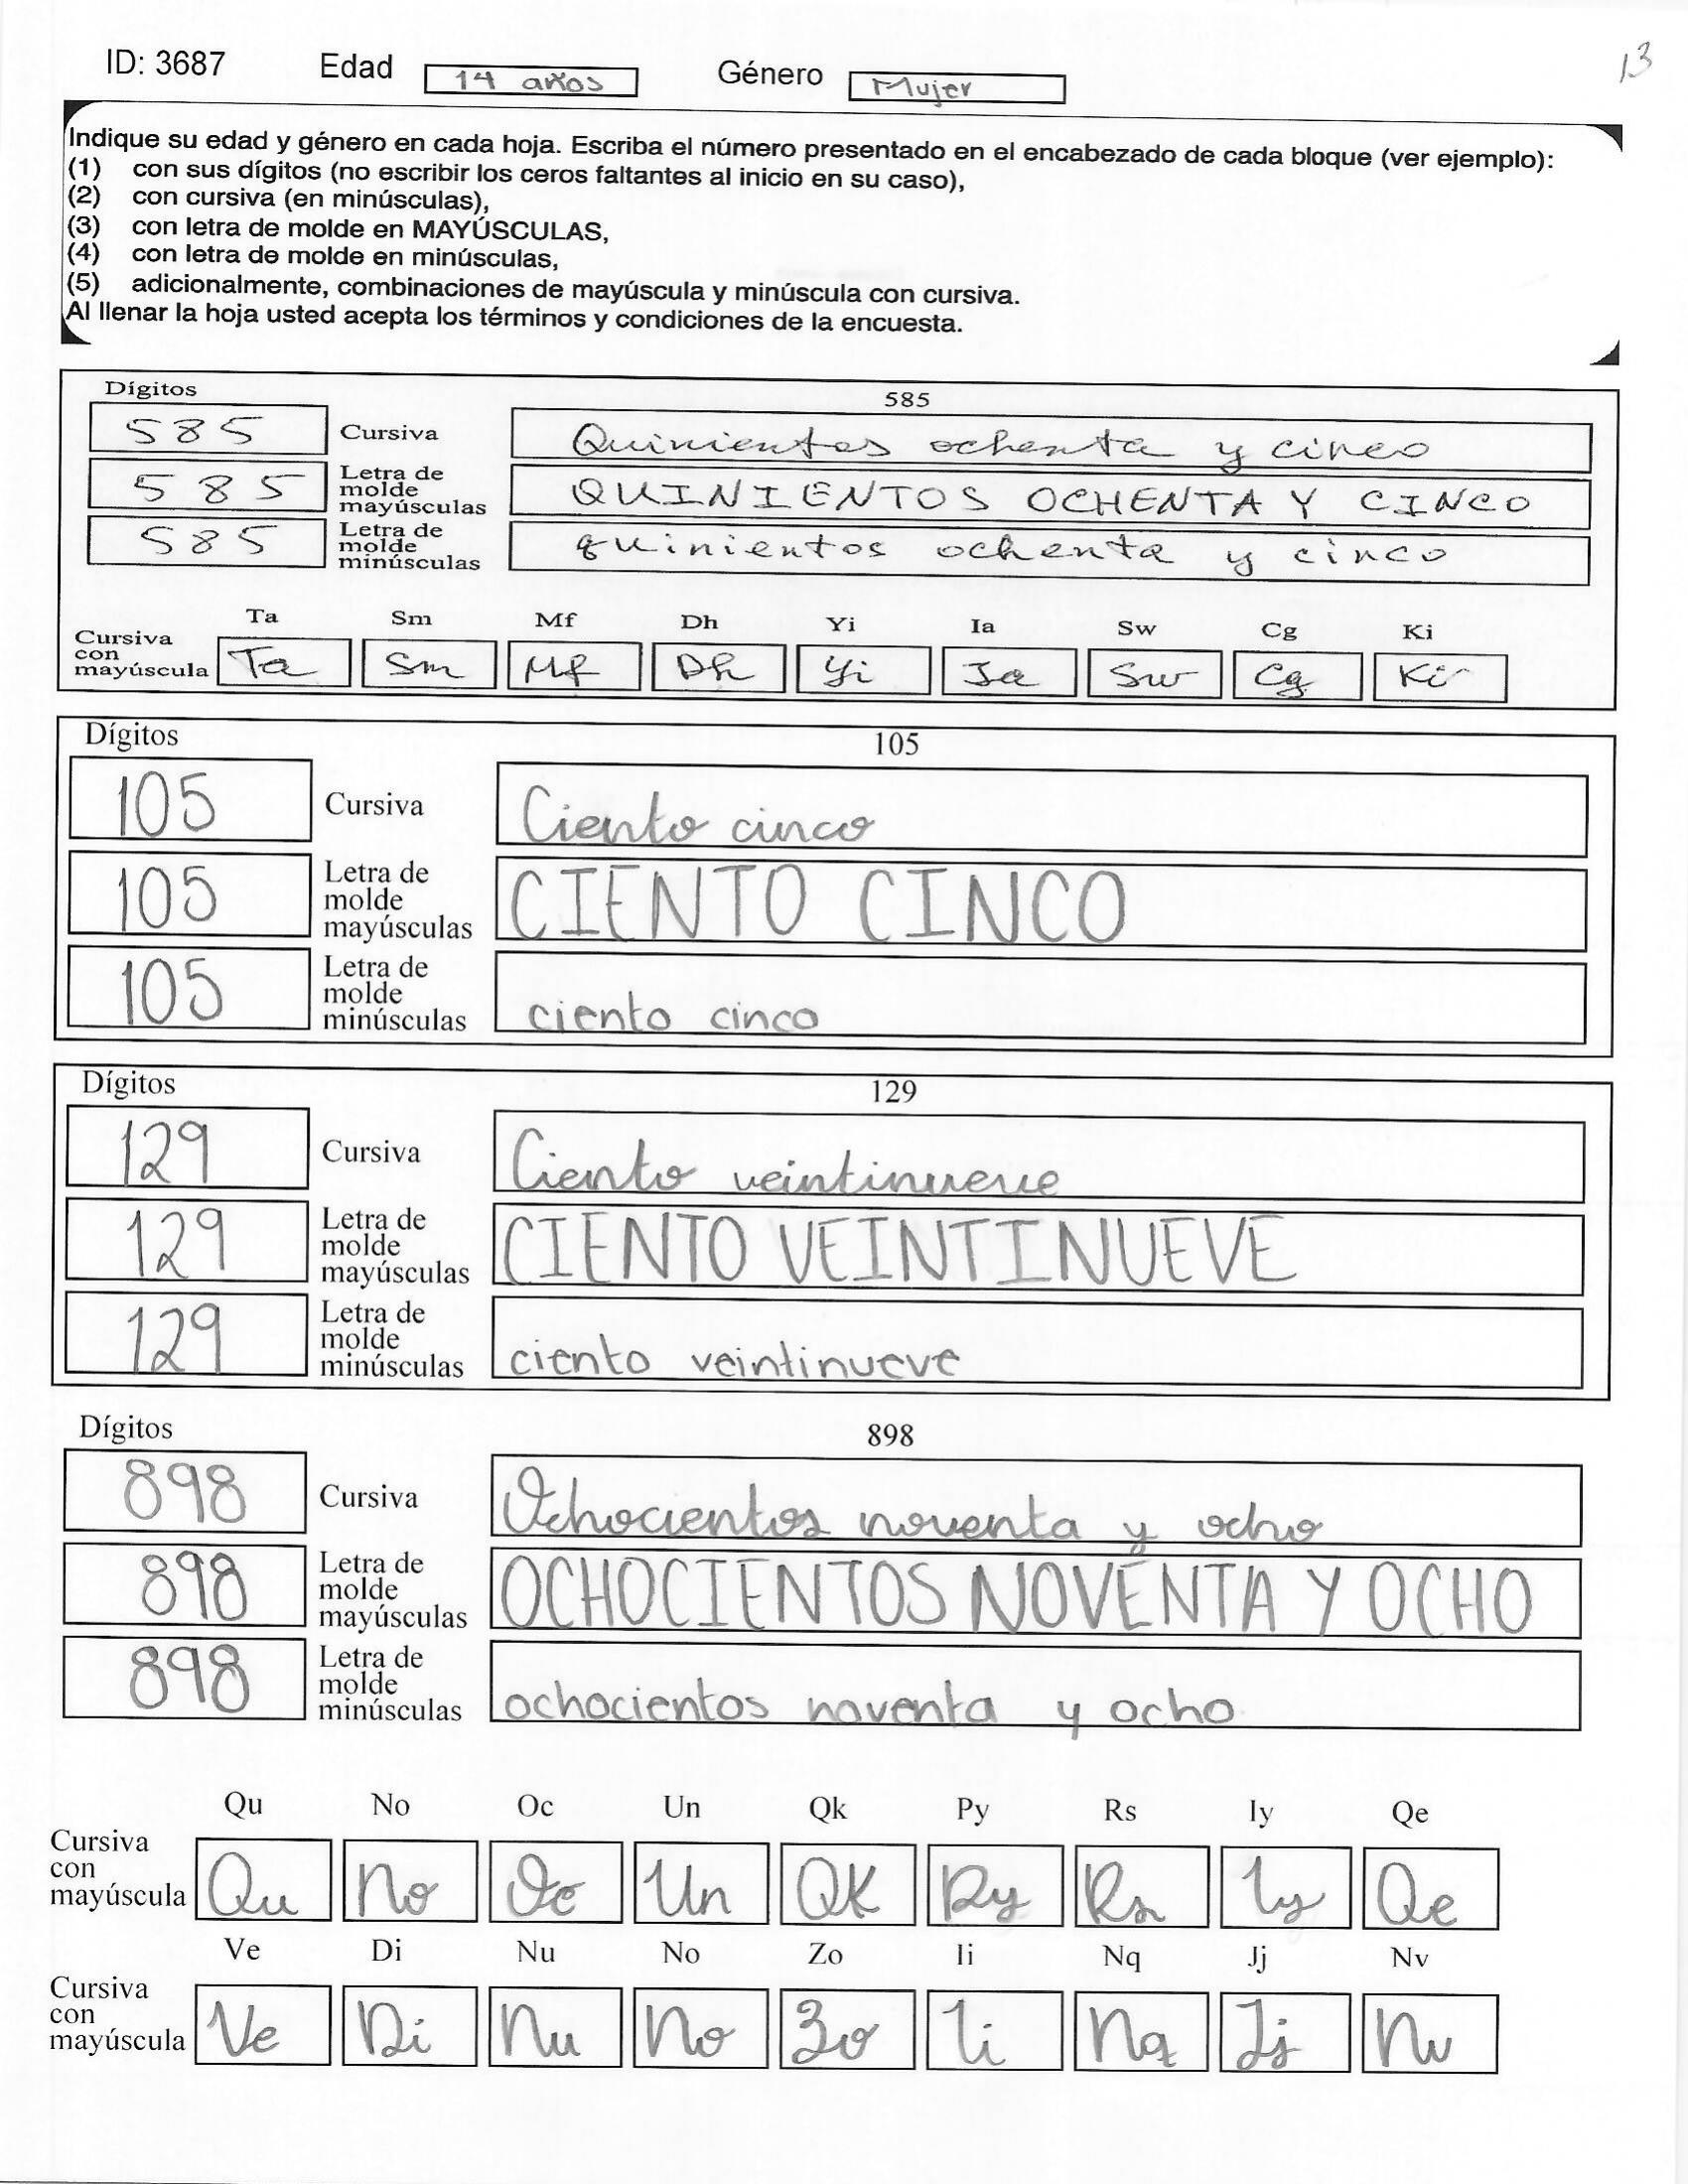 ID: 3687 Edad 14 años Género Mujer 13
Indique su edad y género en cada hoja. Escriba el número presentado en el encabezado de cada bloque (ver ejemplo):
(1) con sus dígitos (no escribir los ceros faltantes al inicio en su caso),
(2) con cursiva (en minúsculas),
(3) con letra de molde en MAYÚSCULAS,
(4) con letra de molde en minúsculas,
(5) adicionalmente, combinaciones de mayúscula y minúscula con cursiva.
Al llenar la hoja usted acepta los términos y condiciones de la encuesta.
Dígitos 585
585 Cursiva Quinientos ochenta y cinco
585 Letra de molde mayúsculas QUINIENTOS OCHENTA Y CINCO
585 Letra de molde minúsculas quinientos ochenta y cinco
Ta Sm Mf Dh Yi Ia Sw Cg Ki
Cursiva con mayúscula Ta Sm Mf Dh Yi Ia Sw Cg Ki
Dígitos 105
105 Cursiva Ciento cinco
105 Letra de molde mayúsculas CIENTO CINCO
105 Letra de molde minúsculas ciento cinco
Dígitos 129
129 Cursiva Ciento veintinueve
129 Letra de molde mayúsculas CIENTO VEINTINUEVE
129 Letra de molde minúsculas ciento veintinueve
Dígitos 898
898 Cursiva Ochocientos noventa y ocho
898 Letra de molde mayúsculas OCHOCIENTOS NOVENTA Y OCHO
898 Letra de molde minúsculas ochocientos noventa y ocho
Qu No Oc Un Qk Py Rs Iy Qe
Cursiva con mayúscula Qu No Oc Un QK Py Rs Iy Qe
Ve Di Nu No Zo Ii Nq Jj Nv
Cursiva con mayúscula Ve Di Nu No Zo Ii Nq Jj Nv